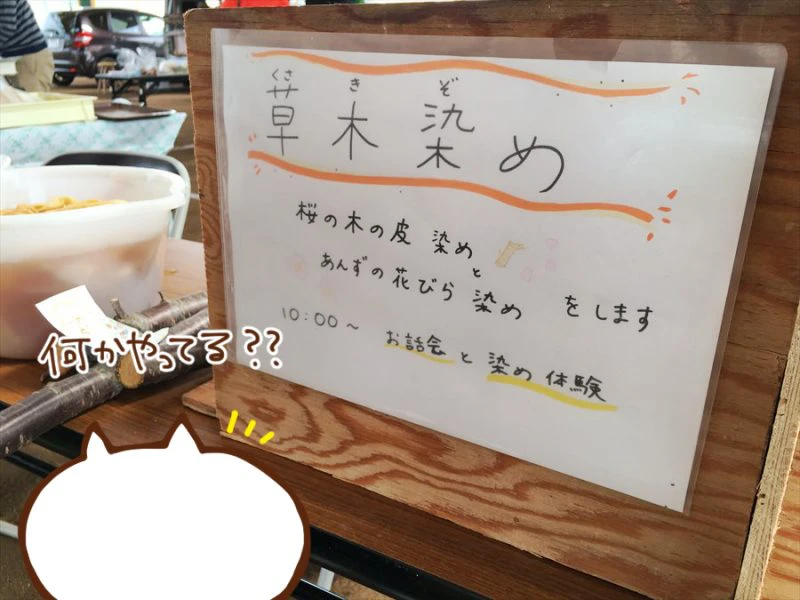 くさ き ぞ
草木染め
桜の木の皮 染め
と
あんずの花びら 染め をします
10:00~
お話会 と 染め 体験
何かやってる??